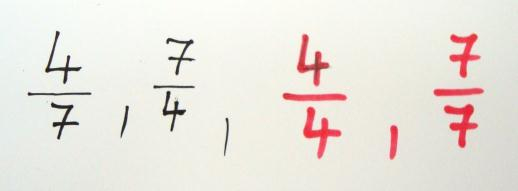 4/7 , 7/4 , 4/4 , 7/7